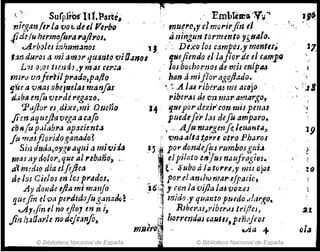 Suspiros III. Parte,
niegan fer la voz de el Verbo
fi de su hermosura rastros,
Arboles inhumanos 13
tan duros a mi amor quanto vianos
Los ojos tiendo, y mas cerca
miro vn fertil prado, pasto
que a vnas obejuelas mansas
daba en su verde regazo.
Pastor es, dixe, mi Dueño 14
si en aquesta vega acaso
con su palabra apacienta
su mas florido ganado!
Sin duda, oygo aqui a mi vida 15
mas ay dolor, que al rebaño,
al medio dia el sestea
de los Cielos en los prados.
Ay donde està mi manso 16
que sin el va perdido su ganado!
Ay, sin el no estoy en mi,
sin hallarle no descanso,
muero
Emblema V. 196
muero, y el morir sin el
à ningun tormento ygualo.
Dexo los campos, y montes, 17
que siendo el la flor de el campo
los bochornos de mis culpas
han à mi flor agostado.
A las riberas me acojo 18
riberas de vn mar amargo,
que por dezir con mis penas
puede ser las de su amparo.
A su margen se leuanta, 19
vna alta torre otro Pharos
por donde sus rumbos guia
el piloto en sus naufragios.
Subo à la torre, y mis ojos 20
por el anchuroso espacio,
y con la vista las vozes
mido, y quanto puedo alargo.
Riberas, riberas tristes, 21
horrendas cauas, peñascos
Aa 4 ola
© Biblioteca Nacional de España
© Biblioteca Nacional de España